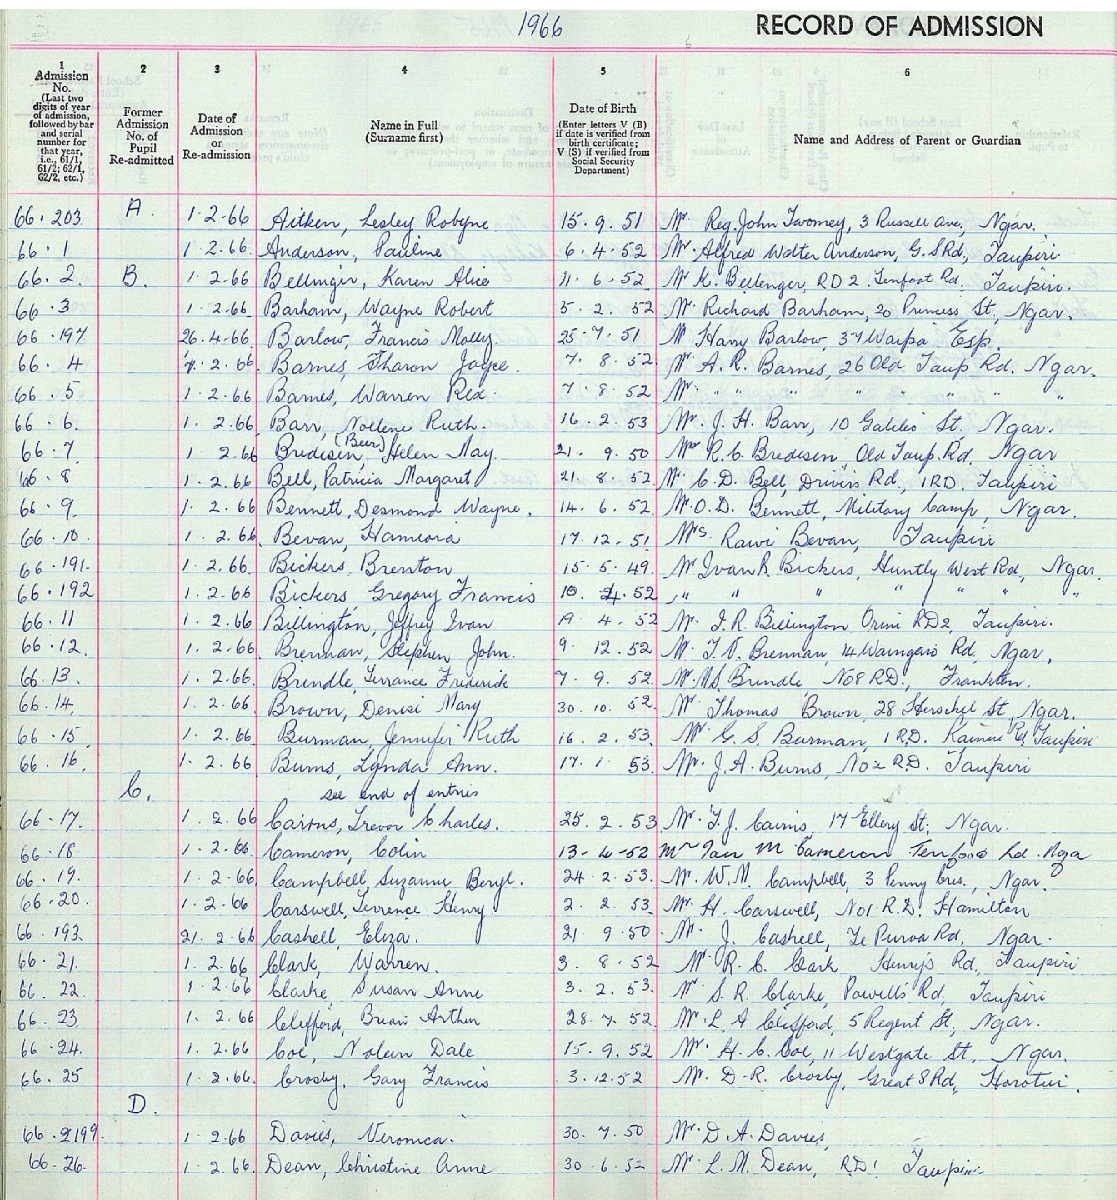 1966
RECORD OF ADMISSION
1 2 3 4 5 6
Admission No. (Last two digits of year of admission, followed by bar and serial number for that year, i.e., 61/1, 61/2; 62/1, 62/2, etc.)
Former Admission No. of Pupil Re-admitted
Date of Admission or Re-admission
Name in Full (Surname first)
Date of Birth (Enter letters V (B) if date is verified from birth certificate; V (S) if verified from Social Security Department.)
Name and Address of Parent or Guardian
66.203 A. 1.2.66 Aitken, Lesley Robyne 15.9.51 Mr Reg. John Twomey, 3 Russell Ave, Ngar.
66.1 1.2.66 Anderson, Pauline 6.4.52 Mr Alfred Walter Anderson, G.S Rd, Taupiri
66.2 B. 1.2.66 Bellinger, Karen Alice 11.6.52 Mr K. Bellenger, RD2 Tenfoot Rd. Taupiri.
66.3 1.2.66 Barham, Wayne Robert 5.2.52 Mr Richard Barham, 20 Princess St, Ngar.
66.197 26.4.66 Barlow, Francis Molly 25.7.51 M Harry Barlow, 37 Waipa Esp.
66.4 2.66 Barnes, Sharon Joyce. 7.8.52 Mr A.R. Barnes, 26 Old Taup Rd. Ngar.
66.5 1.2.66 Barnes, Warren Rex. 7.8.52 Mr " " " " " " "
66.6 1.2.66 Barr, Noelene Ruth. 16.2.53 Mr. J.H. Barr, 10 Galileo St, Ngar.
66.7 1.2.66 Bredesen, (Beer) Helen May 21.9.50 Mr R.C. Bredesen, Old Taup. Rd. Ngar
66.8 1.2.66 Bell, Patricia Margaret 21.8.52 Mr C.D. Bell, Drivers Rd, 1RD. Taupiri
66.9 1.2.66 Bennett, Desmond Wayne. 14.6.52 Mr. O.D. Bennett, Military Camp, Ngar.
66.10 1.2.66 Bevan, Hamiora 17.12.51 Mrs. Rawi Bevan, Taupiri
66.191. 1.2.66 Bickers, Brenton 15.5.49. Mr Ivan R. Bickers, Huntly West Rd, Ngar.
66.192 1.2.66 Bickers Gregory Francis 10.4.52 " " " " " " "
66.11 1.2.66 Billington, Jeffrey Ivan 19.4.52 Mr. I.R. Billington, Orini RD2, Taupiri.
66.12. 1.2.66 Brennan, Stephen John. 9.12.52 Mr. T.V. Brennan, 14 Waingaro Rd, Ngar.
66.13 1.2.66 Brindle, Terrance Frederick 7.9.52 Mr. Brindle No 8 R.D., Frankton.
66.14. 1.2.66 Brown, Denise Mary 30.10.52 Mr. Thomas Brown, 28 Herschel St, Ngar.
66.15 1.2.66 Burman, Jennifer Ruth 16.2.53. Mr. G.S. Burman, 1 R.D. Kainui Rd, Taupiri
66.16. 1.2.66 Burns, Lynda Ann. 17.1.53. Mr. J.A. Burns, No 2 R.D. Taupiri
C. see end of entries
66.17. 1.2.66 Cairns, Trevor Charles. 25.2.53 Mr. T.J. Cairns, 17 Ellery St, Ngar.
66.18 1.2.66 Cameron, Colin 13-4-52 Mr Ian M Cameron Tenfoot Rd. Nga
66.19. 1.2.66 Campbell, Suzanne Beryl. 24.2.53. Mr. W.N. Campbell, 3 Penny Cres., Ngar.
66.20. 1.2.66 Carswell, Terrence Henry 2.2.53. Mr. H. Carswell, No 1 R.D. Hamilton
66.193. 21.2.66 Cashell, Eliza. 21.9.50. Mr. J. Cashell, Te Puroa Rd, Ngar.
66.21. 1.2.66 Clark, Warren. 3.8.52 Mr. R.C. Clark Henrys Rd, Taupiri
66.22. 1.2.66 Clarke, Susan Anne 3.2.53. Mr S.R. Clarke, Powell's Rd, Taupiri
66.23 1.2.66 Clifford, Brian Arthur 28.7.52 Mr. L A Clifford, 5 Regent St, Ngar.
66.24. 1.2.66 Coe, Nolan Dale 15.9.52 Mr. H.C. Coe, 11 Westgate St, Ngar.
66.25 1.2.66. Crosby, Gary Francis 3.12.52 Mr. D.R. Crosby, Great S Rd, Horotiu.
D.
66.2199. 1.2.66 Davies, Veronica. 30.7.50 Mr. D.A. Davies,
66.26. 1.2.66. Dean, Christine Anne 30.6.52 Mr. L.M. Dean, RD1 Taupiri